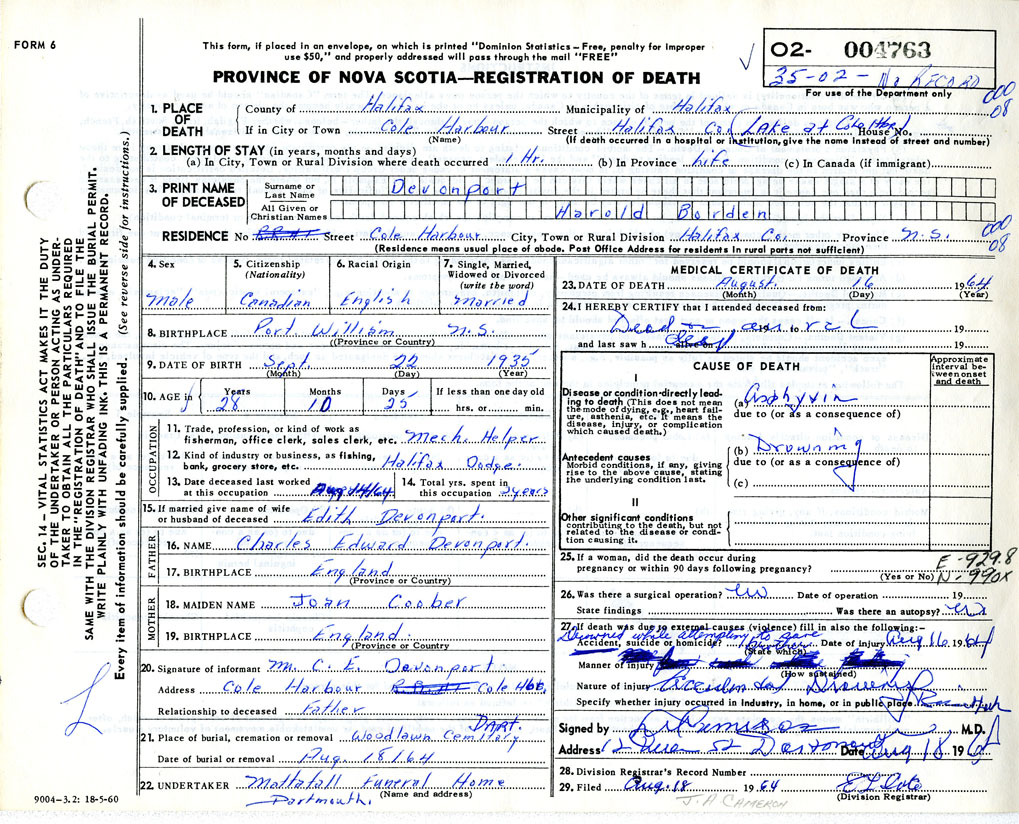 FORM 6
This form, if placed in an envelope, on which is printed "Dominion Statistics—Free, penalty for improper
use $50," and properly addressed will pass through the mail "FREE"
PROVINCE OF NOVA SCOTIA—REGISTRATION OF DEATH
O2- 004763
35-02 - No RECARD
For use of the Department only
000
08
1. PLACE OF DEATH County of Halifax Municipality of Halifax
If in City or Town Cole Harbour Street Halifax Co. (Lake at Cole Hbr) House No.
(Name) (If death occurred in a hospital or institution, give the name instead of street and number)
2. LENGTH OF STAY (in years, months and days)
(a) In City, Town or Rural Division where death occurred 1 Hr. (b) In Province Life (c) In Canada (if immigrant)
3. PRINT NAME OF DECEASED
Surname or Last Name Devonport
All Given or Christian Names Harold Borden
000
08
RESIDENCE No Street Cole Harbour City, Town or Rural Division Halifax Co. Province N.S.
(Residence means usual place of abode. Post Office Address for residents in rural parts not sufficient)
4. Sex Male
5. Citizenship (Nationality) Canadian
6. Racial Origin English
7. Single, Married, Widowed or Divorced (write the word) Married
8. BIRTHPLACE Port William N.S.
(Province or Country)
9. DATE OF BIRTH Sept. 22 1935
(Month) (Day) (Year)
10. AGE in Years 28 Months 10 Days 25 If less than one day old
hrs. or min.
OCCUPATION
11. Trade, profession, or kind of work as
fisherman, office clerk, sales clerk, etc. Mech. Helper
12. Kind of industry or business, as fishing,
bank, grocery store, etc. Halifax Dodge.
13. Date deceased last worked
at this occupation Aug 14/64
14. Total yrs. spent in
this occupation 2 years
15. If married give name of wife
or husband of deceased Edith Devonport.
FATHER
16. NAME Charles Edward Devonport.
17. BIRTHPLACE England
(Province or Country)
MOTHER
18. MAIDEN NAME Joan Coober
19. BIRTHPLACE England.
(Province or Country)
20. Signature of informant Mr. C. E. Devonport.
Address Cole Harbour Cole Hbr.
Relationship to deceased Father
21. Place of burial, cremation or removal Woodlawn Cemetary Dart.
Date of burial or removal Aug. 18/64
22. UNDERTAKER Mattatall Funeral Home
(Name and address)
Dartmouth.
MEDICAL CERTIFICATE OF DEATH
23. DATE OF DEATH August 16 1964
(Month) (Day) (Year)
24. I HEREBY CERTIFY that I attended deceased from:
Dead on to 19
and last saw h alive on 19
CAUSE OF DEATH
Approximate interval between onset and death
I
Disease or condition directly leading to death (This does not mean the mode of dying, e.g., heart failure, asthenia, etc. It means the disease, injury, or complication which caused death.)
(a) Asphyxia
due to (or as a consequence of)
Antecedent causes
Morbid conditions, if any, giving rise to the above cause, stating the underlying condition last.
(b) Drowning
due to (or as a consequence of)
(c)
II
Other significant conditions
contributing to the death, but not related to the disease or condition causing it.
25. If a woman, did the death occur during
pregnancy or within 90 days following pregnancy?
(Yes or No)
E -929.8
N - 990X
26. Was there a surgical operation? Date of operation 19
State findings Was there an autopsy?
27. If death was due to external causes (violence) fill in also the following:—
Drowned while attempting to save brother
Accident, suicide or homicide? Date of injury Aug 16 1964
(State which)
Manner of injury
(How sustained)
Nature of injury Accidental Drowning
Specify whether injury occurred in industry, in home, or in public place
Signed by M.D.
Address Date Aug 18 1964
28. Division Registrar's Record Number
29. Filed Aug. 18 1964
(Division Registrar)
J. A CAMERON
9004-3.2: 18-5-60
SEC. 14 — VITAL STATISTICS ACT MAKES IT THE DUTY
OF THE UNDERTAKER OR PERSON ACTING AS UNDER-
TAKER TO OBTAIN ALL THE PARTICULARS REQUIRED
IN THE "REGISTRATION OF DEATH" AND TO FILE THE
SAME WITH THE DIVISION REGISTRAR WHO SHALL ISSUE THE BURIAL PERMIT.
WRITE PLAINLY WITH UNFADING INK. THIS IS A PERMANENT RECORD.
Every item of information should be carefully supplied. (See reverse side for instructions.)